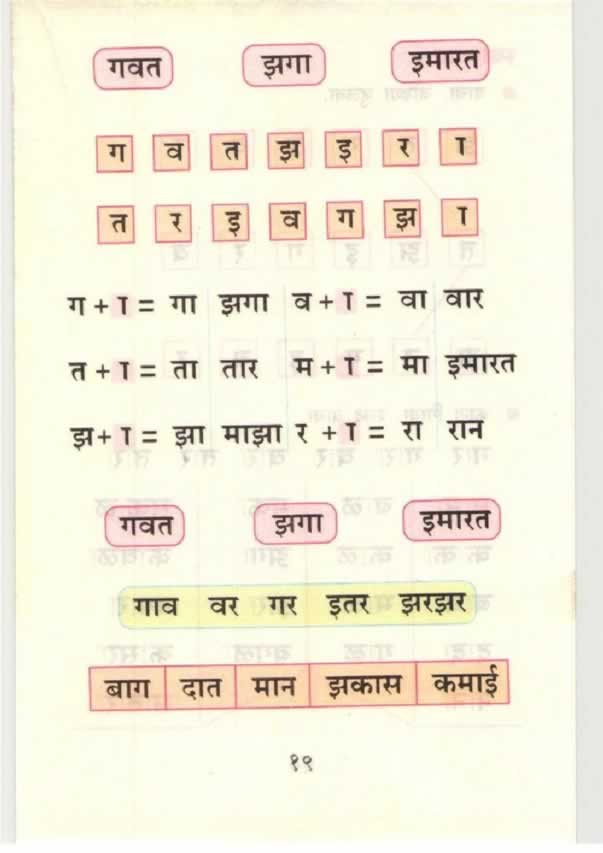 गवत झगा इमारत
ग व त झ इ र ा
त र इ व ग झ ा
ग + ा = गा झगा व + ा = वा वार
त + ा = ता तार म + ा = मा इमारत
झ+ ा = झा माझा र + ा = रा रान
गवत झगा इमारत
गाव वर गर इतर झरझर
बाग दात मान झकास कमाई
१९